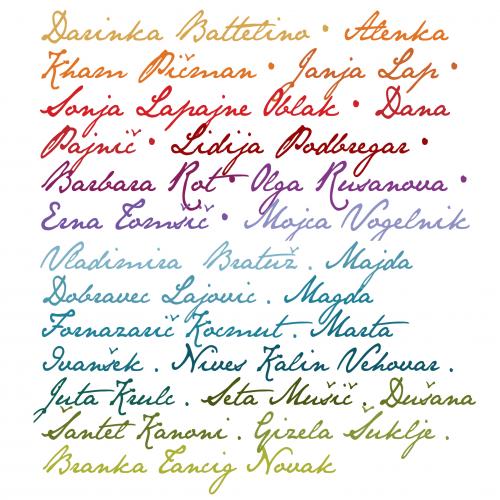 Darinka Battelino • Alenka
Kham Pičman • Janja Lap •
Sonja Lapajne Oblak • Dana
Pajnič • Lidija Podbregar •
Barbara Rot • Olga Rusanova •
Erna Tomšič • Mojca Vogelnik
Vladimira Bratuž . Majda
Dobravec Lajovic . Magda
Fornazarič Kocmut . Marta
Ivanšek . Nives Kalin Vehovar .
Juta Krulc . Seta Mušič . Dušana
Šantel Kanoni . Gizela Šuklje .
Branka Tancig Novak